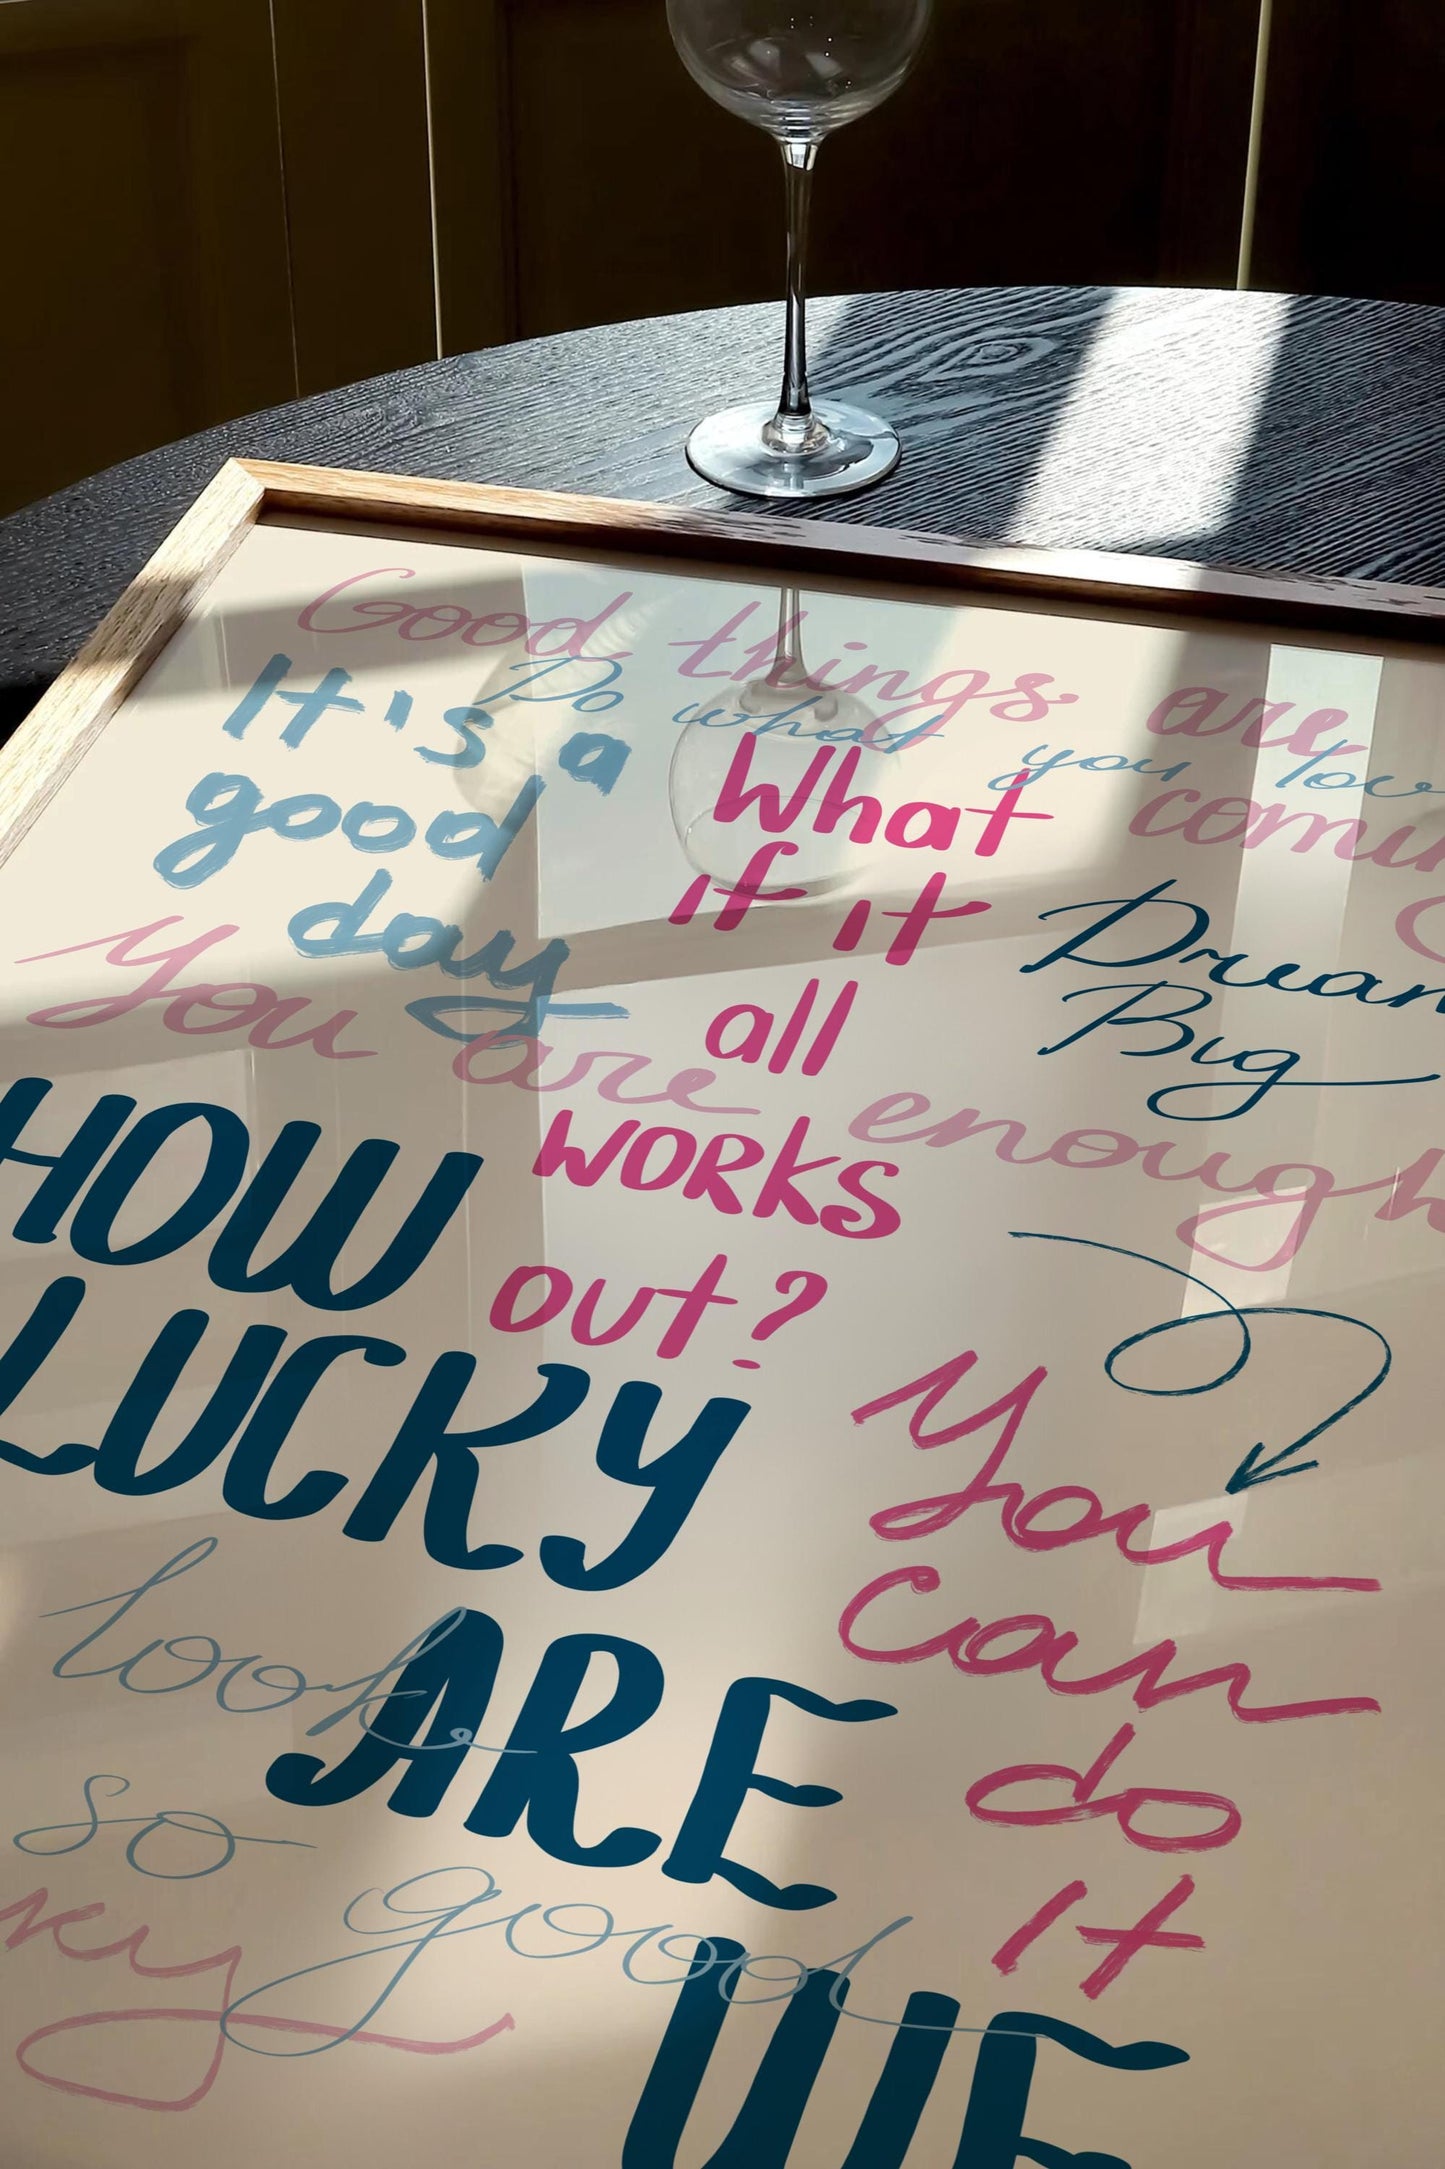 Good things are
Do what you
It's a
good
day
What
if it
all
WORKS
out?
Big
You are enough
HOW
LUCKY
ARE
WE
You
can
do
it
look
so good